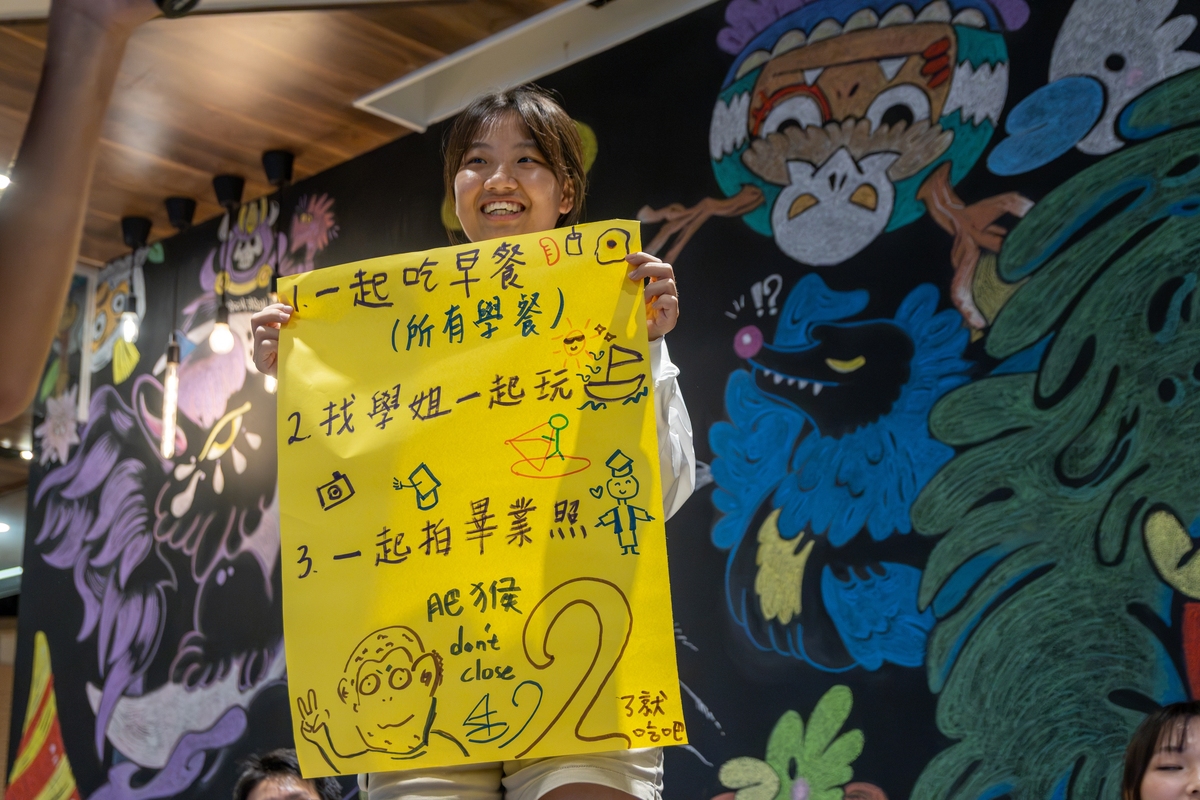 1. 一起吃早餐
(所有學餐)
2. 找學姐一起玩
3. 一起拍畢業照
肥猴
don't
close
2
了就
吃吧
!?